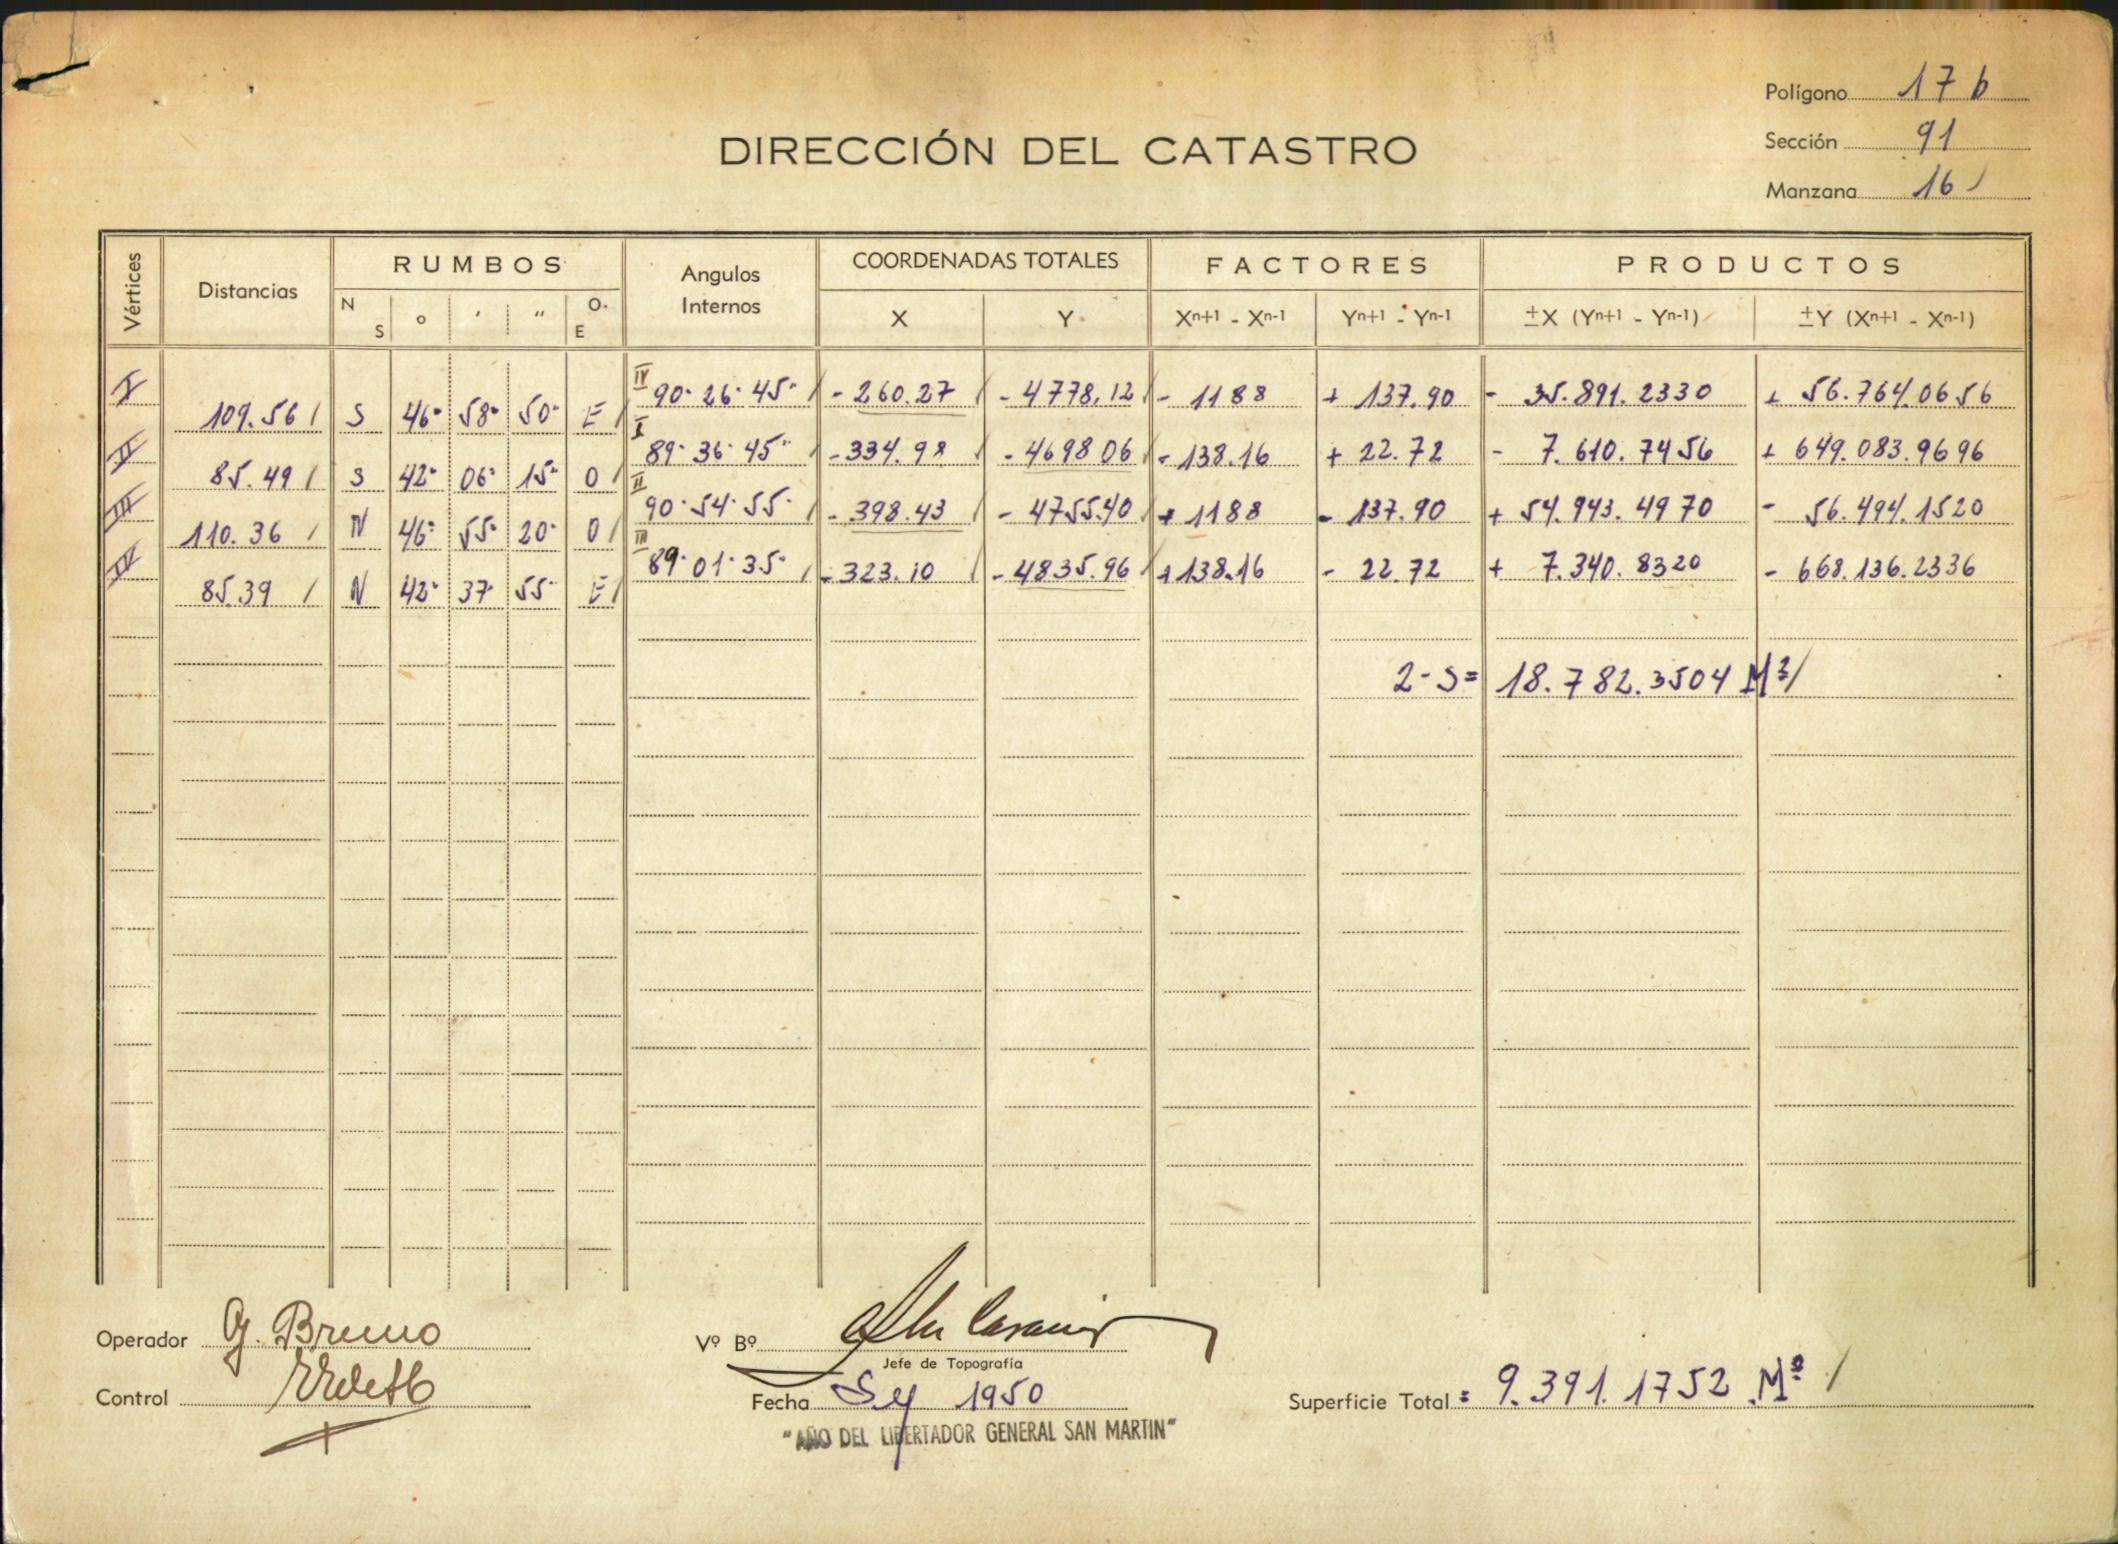 Polígono 17 b
Sección 91
Manzana 16
DIRECCIÓN DEL CATASTRO
Vértices Distancias RUMBOS Angulos Internos COORDENADAS TOTALES FACTORES PRODUCTOS
N S o ' " O. E X Y Xn+1 - Xn-1 Yn+1 - Yn-1 ±X (Yn+1 - Yn-1) ±Y (Xn+1 - Xn-1)
I IV 90° 26' 45" - 260.27 - 4778,12 - 11 88 + 137.90 - 35.891.2330 + 56.764.0656
109.56 S 46° 58' 50" E
II I 89° 36' 45" - 334.98 - 4698 06 - 138.16 + 22.72 - 7.610.7456 + 649.083.9696
85.49 S 42° 06' 15" O
III II 90° 54' 55" - 398.43 - 4755.40 + 11 88 - 137.90 + 54.943.4970 - 56.494.1520
110.36 N 46° 55' 20" O
IV III 89° 01' 35" - 323.10 - 4835.96 + 138.16 - 22.72 + 7.340.8320 - 668.136.2336
85.39 N 42° 37' 55" E
2-S= 18.782.3504 M2
Operador G. Bruno
Control
Vº Bº
Jefe de Topografía
Fecha 1950
"AÑO DEL LIBERTADOR GENERAL SAN MARTIN"
Superficie Total = 9.391.1752 M²